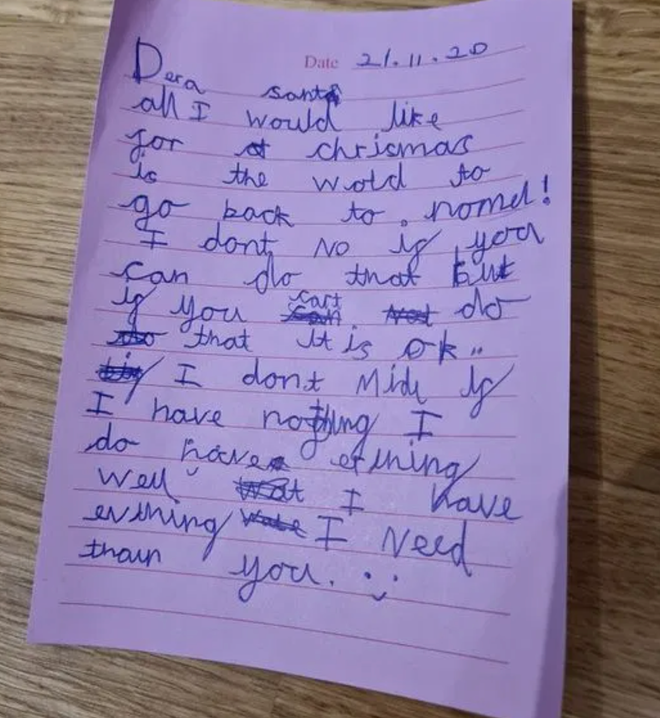 Date 21.11.20
Dera santa
all I would like
for chrismas
is the wold to
go back to nomel!
I dont no if you
can do that but
if you cart do
that it is ok..
I dont Midu if
I have nothing I
do have ething
well I have
evthing I Need
thaun you.